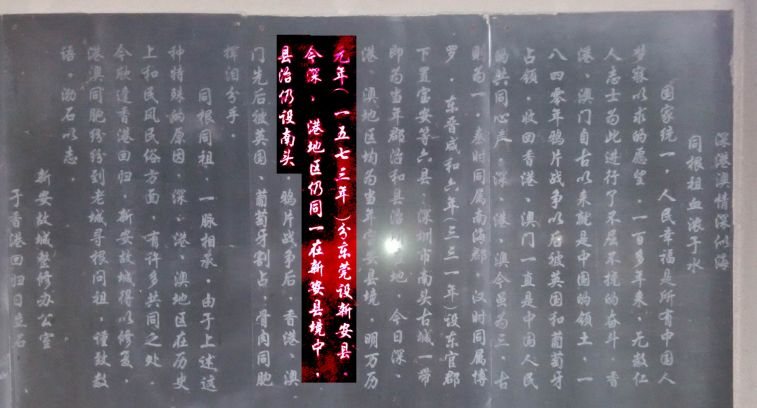 深港澳情深似海
同根祖血浓于水
国家统一,人民幸福是所有中国人
梦寐以求的愿望。一百多年来,无数仁
人志士为此进行了不屈不挠的奋斗。香
港、澳门自古以来就是中国的领土,一
八四零年鸦片战争以后被英国和葡萄牙
占领,收回香港、澳门一直是中国人民
的共同心声。深、港、澳今虽为三,古
则为一。秦时同属南海郡,汉时同属博
罗。东晋咸和六年(三三一年)设东官郡
下置宝安等六县,深圳南头古城一带
即为当年郡治和县治地。今日深、
港、澳地区均为当年安县境。明万历
元年(一五七三年)分东莞设新安县,
今深、港地区仍同一在新安县境中,
县治仍设南头。鸦片战争后,香港、澳
门先后被英国、葡萄牙割占,骨肉同胞
挥泪分手。
同根同祖,一脉相承,由于上述这
种特殊的原因,深、港、澳地区在历史
上和民风民俗方面,有许多共同之处。
今欣逢香港回归,新安故城得以修复,
港澳同胞纷纷到老城寻根问祖,谨致数
语,勒石以志。
新安故城整修办公室
于香港回归日立石